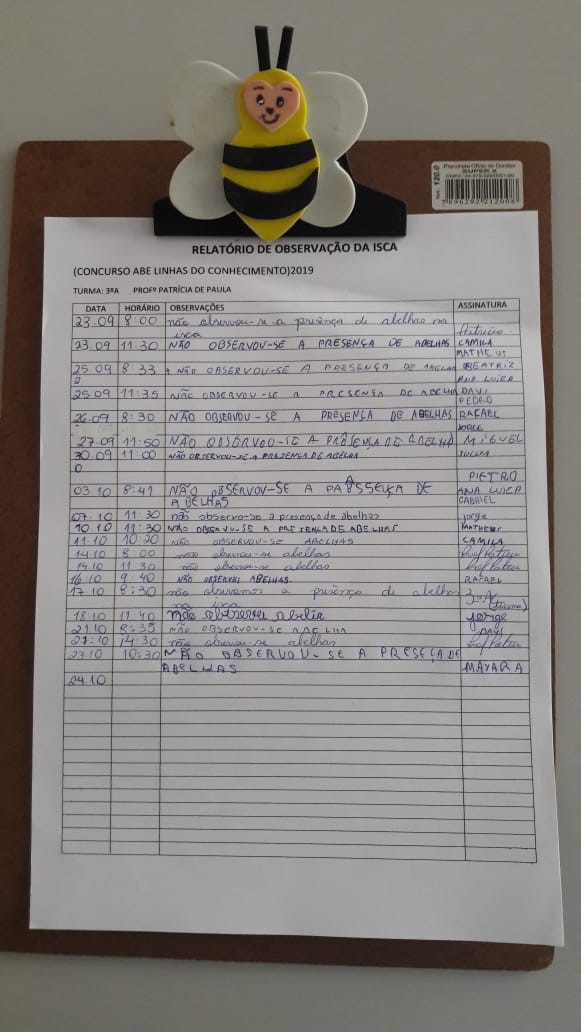 Prancheta Ofício de Duratex
SUPER X
Ref. 120.0
7896292212008
RELATÓRIO DE OBSERVAÇÃO DA ISCA
(CONCURSO ABE LINHAS DO CONHECIMENTO)2019
TURMA: 3ºA PROFª PATRÍCIA DE PAULA
DATA HORÁRIO OBSERVAÇÕES ASSINATURA
23.09 8:00 não observou-se a presença de abelhas na
isca Patrícia
23.09 11:30 NÃO OBSERVOU-SE A PRESENÇA DE ABELHAS CAMILA
MATHEUS
25.09 8:33 NÃO OBSERVOU-SE A PRESENÇA DE ABELHA BEATRIZ
ANA LUIZA
25.09 11:35 NÃO OBSERVOU-SE A PRESENSA DE ABELHA DAVI
PEDRO
26.09 8:30 NÃO OBSERVOU-SE A PRESENÇA DE ABELHAS RAFAEL
JORGE
27.09 11:50 NÃO OBSERVOU-SE A PRESENÇA DE ABELHA MIGUEL
30.09 11:00 NÃO OBSERVOU-SE A PRAZENÇA DE ABELHA
PIETRO
03.10 8:41 NÃO OBSERVOU-SE A DE ANA LUIZA
ABELHAS GABRIEL
07.10 11:30 não observo-se a presença de abelhas Jorge
10.10 11:30 NÃO DE ABELHAS MATHEUS
11.10 10:20 NÃO OBSERVOU-SE ABELHAS CAMILA
14.10 8:00 não observou-se abelhas
14.10 11:30 não observou-se abelhas
16.10 9:40 NÃO OBSERVEI ABELHAS RAFAEL
17.10 8:30 não observamos a presença de abelhas 3ºA
na isca (turma)
18.10 11:40 não observei abelha Jorge
21.10 8:35 NÃO OBSERVOU-SE ABELHA DAVI
21.10 14:30 não observou-se abelhas
23.10 10:30 NÃO OBSERVOU-SE A PRESEÇA DE
ABELHAS MAYARA
24.10